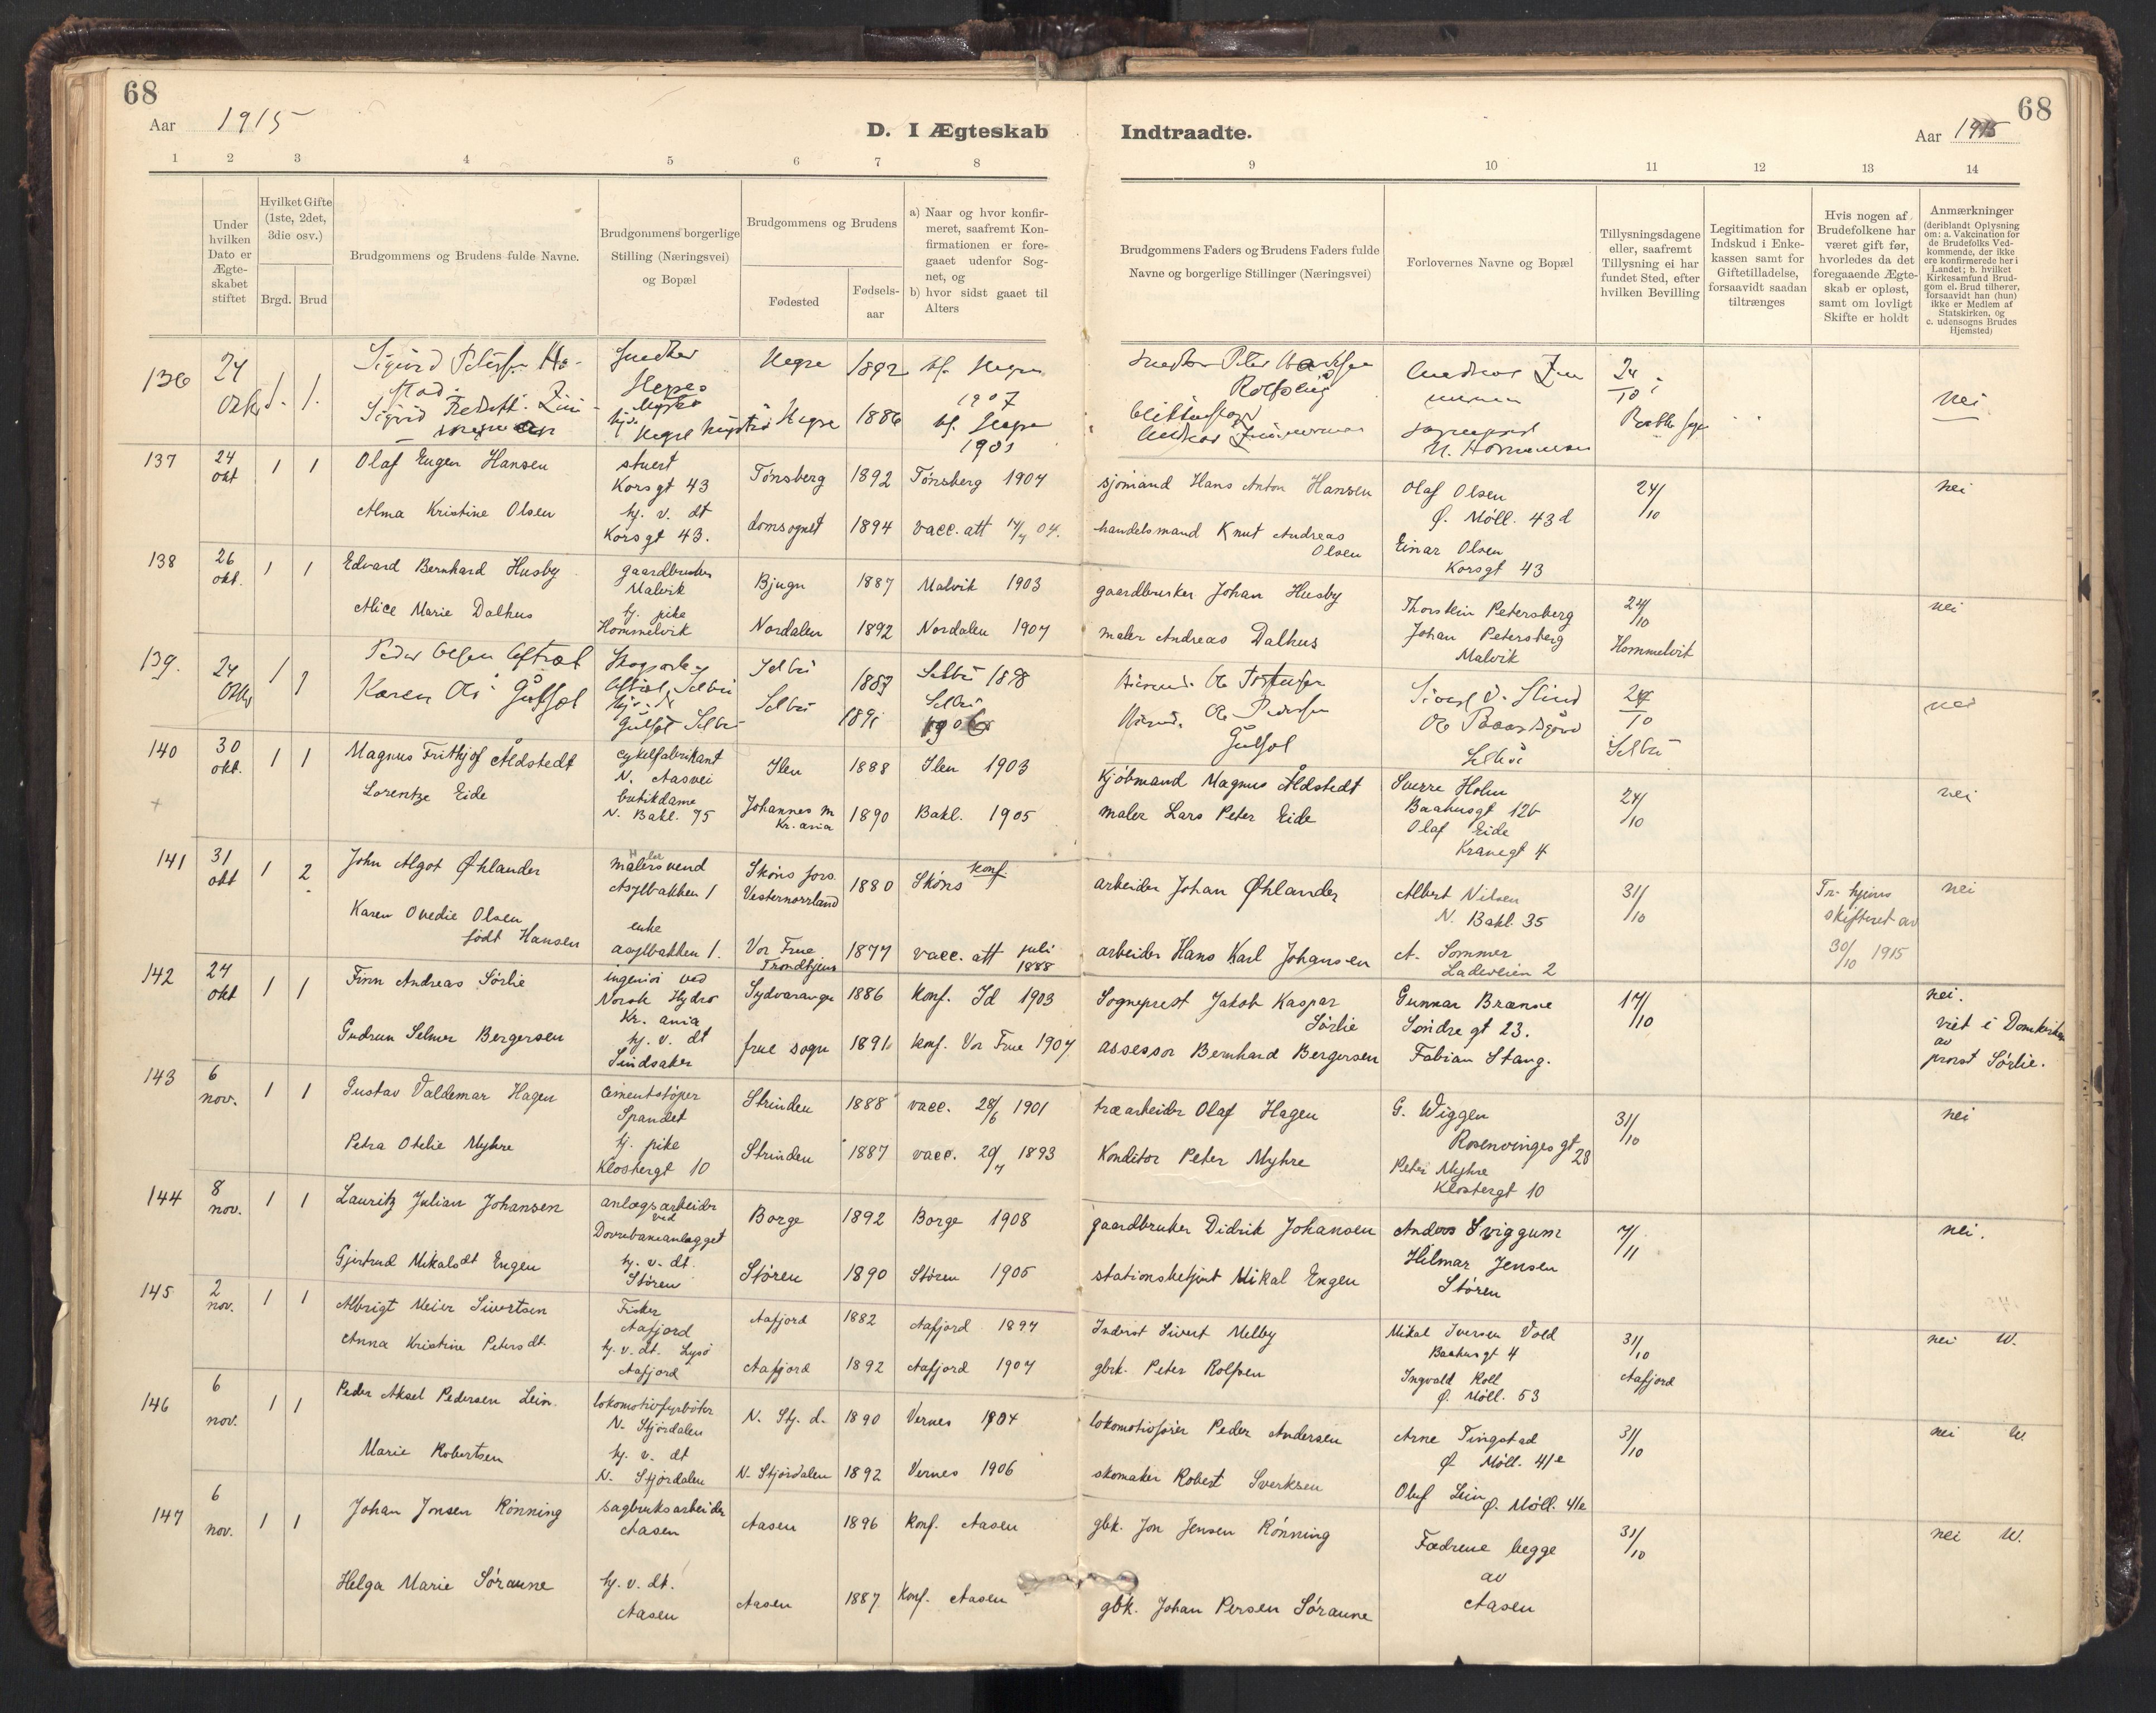 68
68
Aar 1915
D. I Ægteskab
Indtraadte.
Aar 1915
1 2 3 4 5 6 7 8 9 10 11 12 13 14
Under
hvilken
Dato er
Ægte-
skabet
stiftet
Hvilket Gifte
(1ste, 2det,
3die osv.)
Brgd. Brud
Brudgommens og Brudens fulde Navne.
Brudgommens borgerlige
Stilling (Næringsvei)
og Bopæl
Brudgommens og Brudens
Fødested
Fødsels-
aar
a) Naar og hvor konfir-
meret, saafremt Kon-
firmationen er fore-
gaaet udenfor Sog-
net, og
b) hvor sidst gaaet til
Alters
Brudgommens Faders og Brudens Faders fulde
Navne og borgerlige Stillinger (Næringsvei)
Forlovernes Navne og Bopæl
Tillysningsdagene
eller, saafremt
Tillysning ei har
fundet Sted, efter
hvilken Bevilling
Legitimation for
Indskud i Enke-
kassen samt for
Giftetilladelse,
forsaavidt saadan
tiltrænges
Hvis nogen af
Brudefolkene har
været gift før,
hvorledes da det
foregaaende Ægte-
skab er opløst,
samt om lovligt
Skifte er holdt
Anmærkninger
(deriblandt Oplysning
om: a. Vakcination for
de Brudefolks Ved-
kommende, der ikke
ere konfirmerede her i
Landet; b. hvilket
Kirkesamfund Brud-
gom el. Brud tilhører,
forsaavidt han (hun)
ikke er Medlem af
Statskirken, og
c. udensogns Brudes
Hjemsted)
136 24 1. 1. Sigurd Hegre 1892 Hegre 24/10 nei
1907
Sigrid Hegre 1886
137 24 okt 1 1 Olaf Eugen Hansen stuert Tønsberg 1892 Tønsberg 1907 sjømand Hans Anton Hansen Olaf Olsen 24/10 nei
Korsgt 43 Ø. Møll. 43d
Alma Kristine Olsen hj. v. dt domsognet 1894 vacc. att 04. handelsmand Knut Andreas Olsen Einar Olsen
Korsgt 43. Korsgt 43
138 26 okt. 1 1 Edvard Bernhard Husby gaardbruker Bjugn 1887 Malvik 1903 gaardbruker Johan Husby Thorstein Petersberg 24/10 nei
Malvik
Alice Marie Dalhus tj. pike Nordalen 1892 Nordalen 1907 maler Andreas Dalhus Johan Petersberg Hommelvik
Hommelvik Malvik
139. 24 1 1 Peder Olsen Selbu 1883 Selbu 1898 24/10 nei
Karen Selbu 1891 Selbu 1906 Selbu
140 30 okt. 1 1 Magnus Frithjof Åldstedt cykelfabrikant Ilen 1888 Ilen 1903 kjøbmand Magnus Åldstedt Sverre Holm 24/10 nei
N. Aasvei Baahusgt 12b
Lorentze Eide butikdame Johannes m 1890 Bakl. 1905 maler Lars Peter Eide Olaf Eide
N. Bakl. 95 Kr.ania Kranegt 4
141 31 okt 1 2 John Algot Øhlander malersvend Sköns fors. 1880 Sköns konf. arbeider Johan Øhlander Albert Nilsen 31/10 Tr. hjems nei
Asylbakken 1 Vesternorrland N. Bakl. 35 skifteret av
30/10 1915
Karen Ovedie Olsen enke Vor Frue 1877 vacc. att juli 1888 arbeider Hans Karl Johansen A. Sommer
født Hansen asylbakken 1. Trondhjem Ladeveien 2
142 24 okt 1 1 Finn Andreas Sørlie ingeniør ved Sydvaranger 1886 konf. Id 1903 Sogneprest Jakob Kaspar Sørlie Gunnar Brænne 17/10 nei.
Norsk Hydro Søndre gt 23. viet i Domkirken
Kr. ania av
Gudrun Selmer Bergersen hj. v. dt frue sogn 1891 konf. Vor Frue 1907 assessor Bernhard Bergersen Fabian Stang. prost Sørlie.
Sindsaker
143 6 nov. 1 1 Gustav Valdemar Hagen cementstøper Strinden 1888 vacc. 28/6 1901 træarbeider Olaf Hagen G. Wiggen 31/10 nei
Spandet Rosenvinges gt 28
Petra Otelie Myhre tj. pike Strinden 1887 vacc. 29/7 1893 Konditor Peter Myhre Peter Myhre
Klostergt 10 Klostergt 10
144 8 nov. 1 1 Lauritz Julian Johansen anlægsarbeider Borge 1892 Borge 1908 gaardbruker Didrik Johansen Anders Sviggum 7/11 nei.
ved
Dovrebaneanlægget
Gjertrud Mikalsdt Engen hj. v. dt. Støren 1890 Støren 1905 stationsbetjent Mikal Engen Hilmar Jensen
Støren Støren
145 2 nov. 1 1 Albrigt Meier Sivertsen Fisker Aafjord 1882 Aafjord 1897 Inderst Sivert Melby Mikal Iversen Vold 31/10 nei W.
Aafjord Baahusgt 4
Anna Kristine Petersdt. hj. v. dt. Lysø Aafjord 1892 Aafjord 1907 gbrk. Peter Rolfsen Ingvald Roll Aafjord
Aafjord Ø. Møll. 53
146 6 nov. 1 1 Peder Aksel Pedersen Lein. lokomotivfyrbøter N. Stj. d. 1890 Vernes 1904 lokomotivfører Peder Andersen Arne Tingstad 31/10 nei W.
N. Stjørdalen Ø Møll. 41e
Marie Robertsen hj. v. dt N. Stjørdalen 1892 Vernes 1906 skomaker Robert Sverksen Oluf Lein
N. Stjørdalen Ø. Møll. 41e
147 6 nov. 1 1 Johan Jonsen Rønning sagbruksarbeider Aasen 1896 Konf. Aasen gbk. Jon Jensen Rønning Fædrene begge 31/10 nei W.
Aasen av
Helga Marie Søraune hj. v. dt. Aasen 1887 Konf. Aasen gbk. Johan Persen Søraune Aasen
Aasen